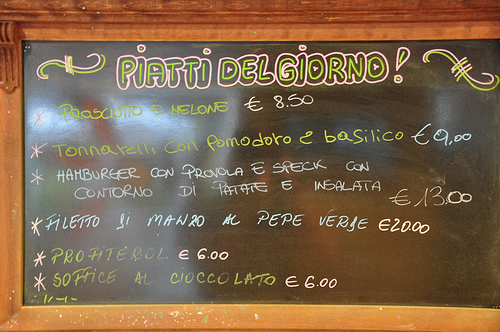 PIATTI DEL GIORNO!
* PROSCIUTTO E MELONE € 8.50
* Tonnarelli con Pomodoro e basilico € 9,00
* HAMBURGER CON PROVOLA E SPECK CON
CONTORNO DI PATATE E INSALATA € 13.00
* FILETTO DI MANZO AL PEPE VERDE €20.00
* PROFITEROL € 6.00
* SOFFICE AL CIOCCOLATO € 6.00